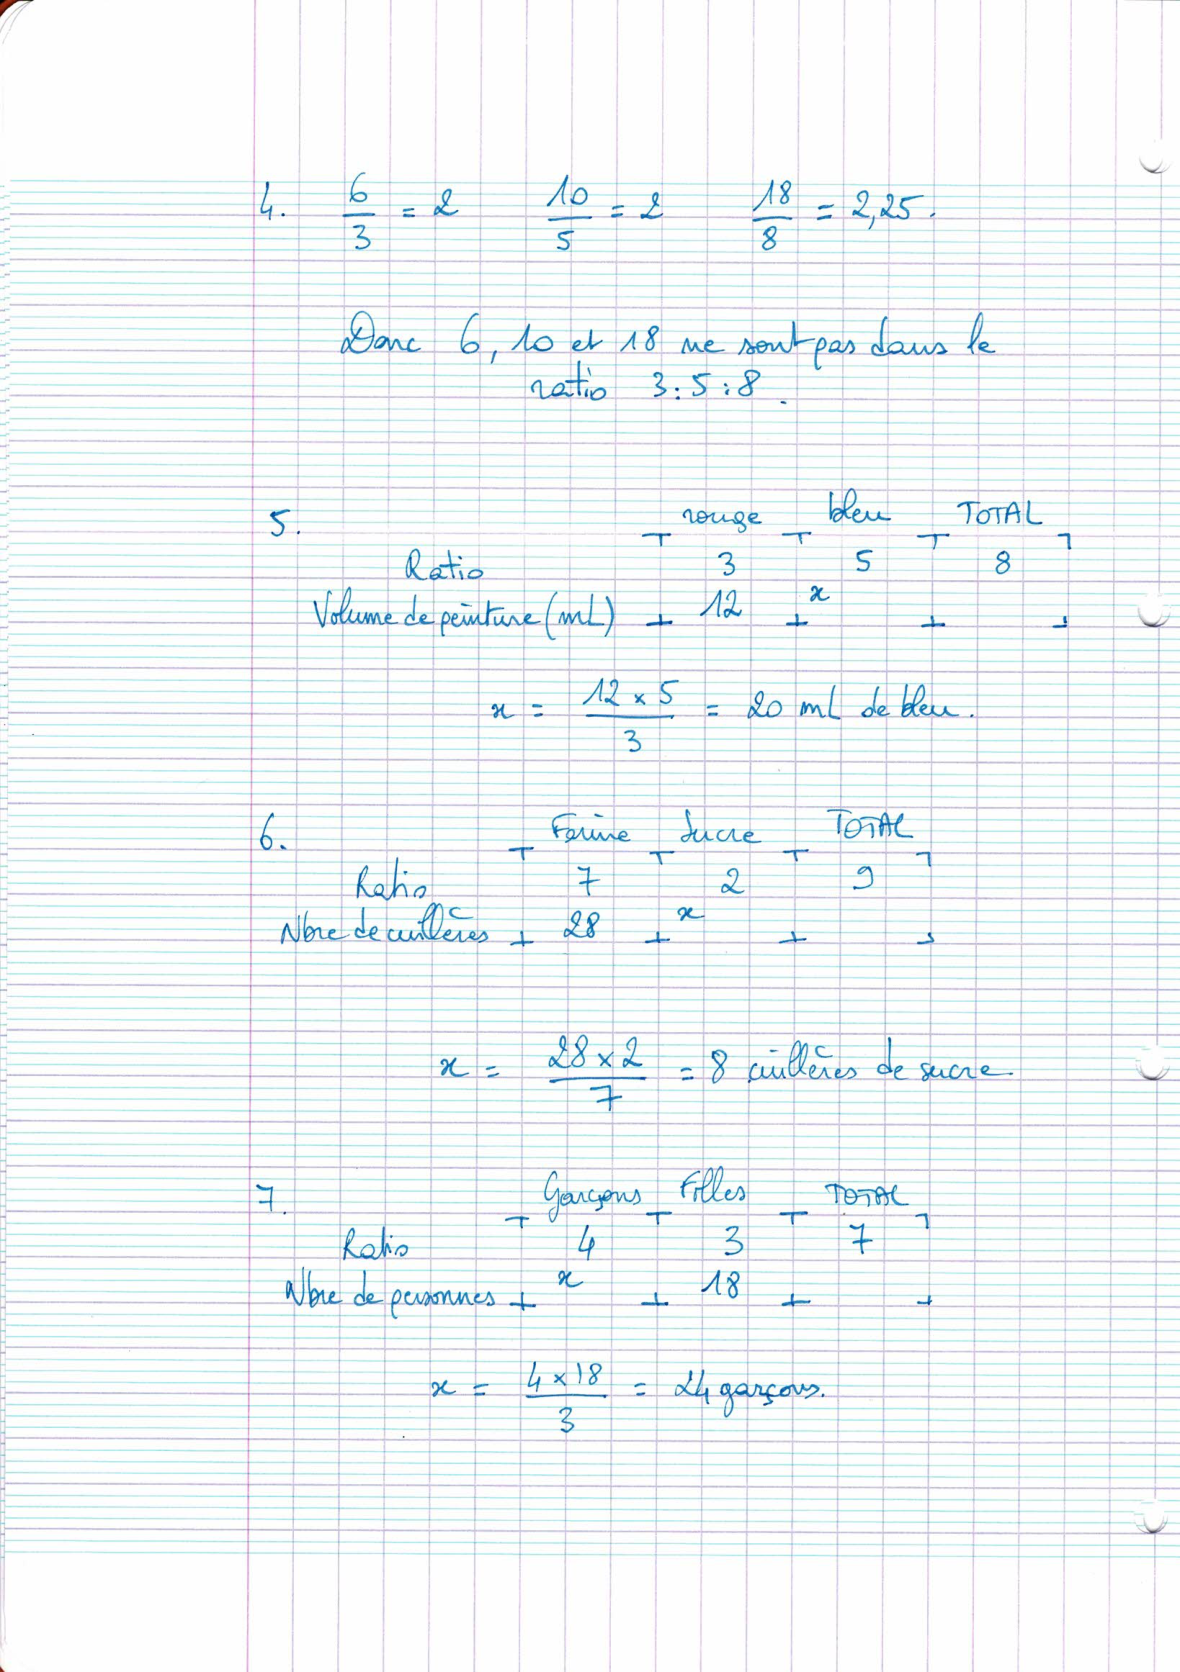 4. 6/3 = 2 10/5 = 2 18/8 = 2,25.
Donc 6, 10 et 18 ne sont pas dans le
ratio 3:5:8.
5. rouge bleu TOTAL
Ratio 3 5 8
Volume de peinture (mL) 12 x
x = 12 × 5 / 3 = 20 mL de bleu.
6. Farine Sucre TOTAL
Ratio 7 2 9
Nbre de cuillères 28 x
x = 28 × 2 / 7 = 8 cuillères de sucre
7. Garçons Filles TOTAL
Ratio 4 3 7
Nbre de personnes x 18
x = 4 × 18 / 3 = 24 garçons.